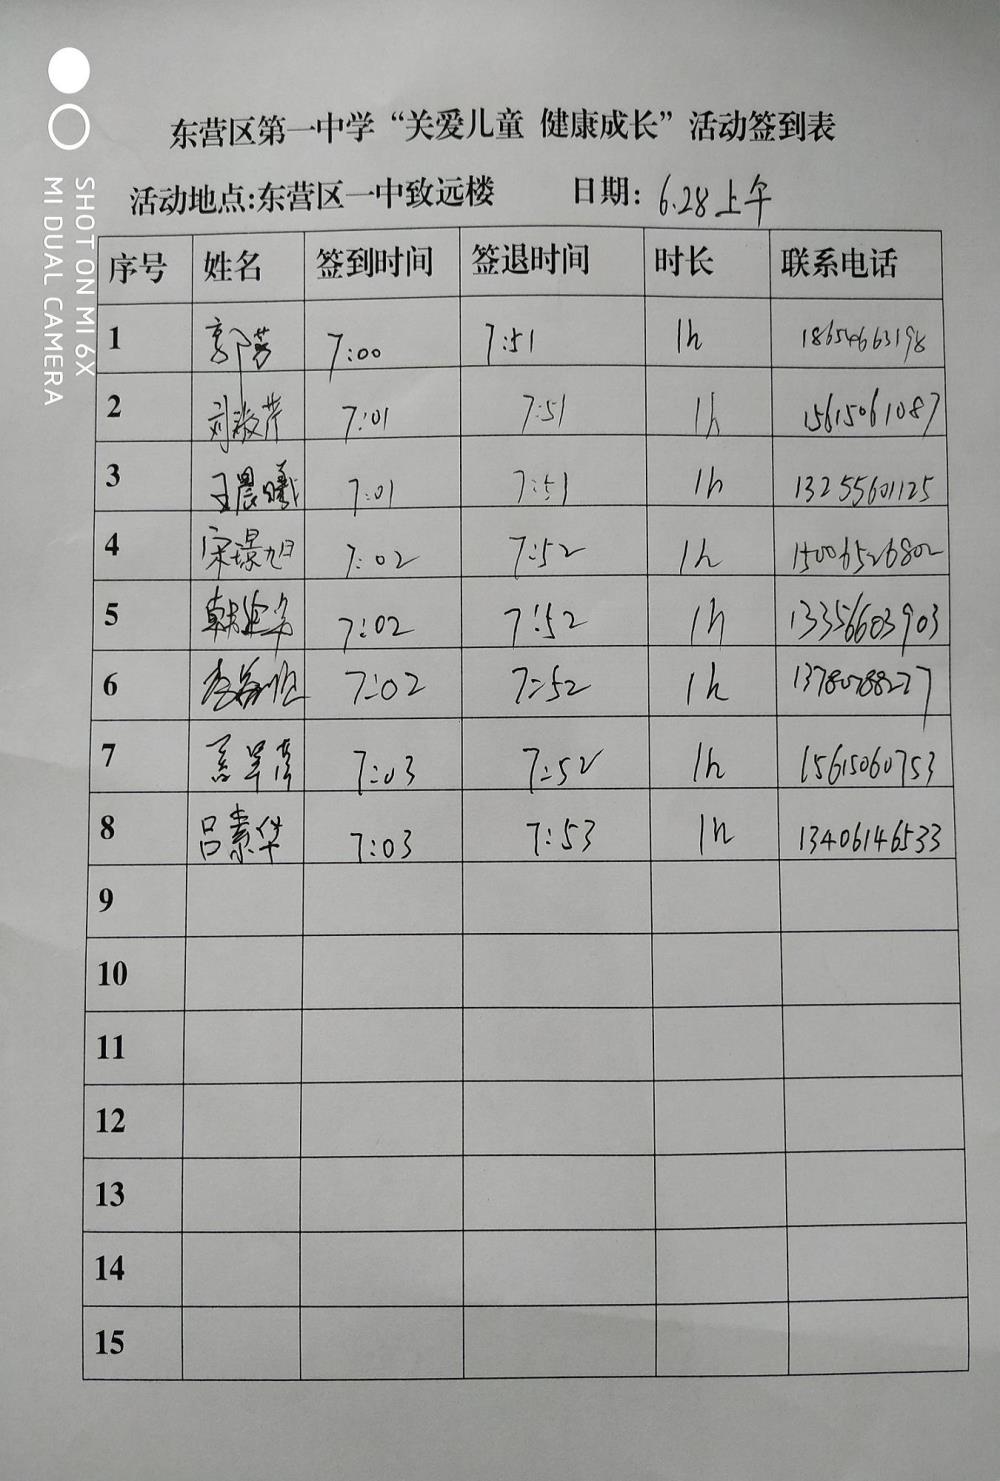 SHOT ON MI 6X
MI DUAL CAMERA
东营区第一中学“关爱儿童 健康成长”活动签到表
活动地点:东营区一中致远楼 日期: 6.28上午
序号 姓名 签到时间 签退时间 时长 联系电话
1 郭芳 7:00 7:51 1h 18654663198
2 刘淑芹 7:01 7:51 1h 15615061087
3 王晨曦 7:01 7:51 1h 13255601125
4 宋璟旭 7:02 7:52 1h 15006526802
5 7:02 7:52 1h 13356603903
6 7:02 7:52 1h
7 7:03 7:52 1h 15615060753
8 吕素华 7:03 7:53 1h 13406146533
9
10
11
12
13
14
15